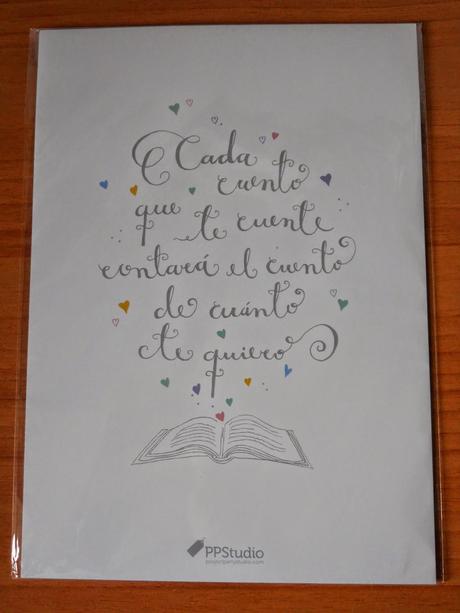 Cada
cuento
que te cuente
contará el cuento
de cuánto
te quiero
PPStudio
projectpartystudio.com